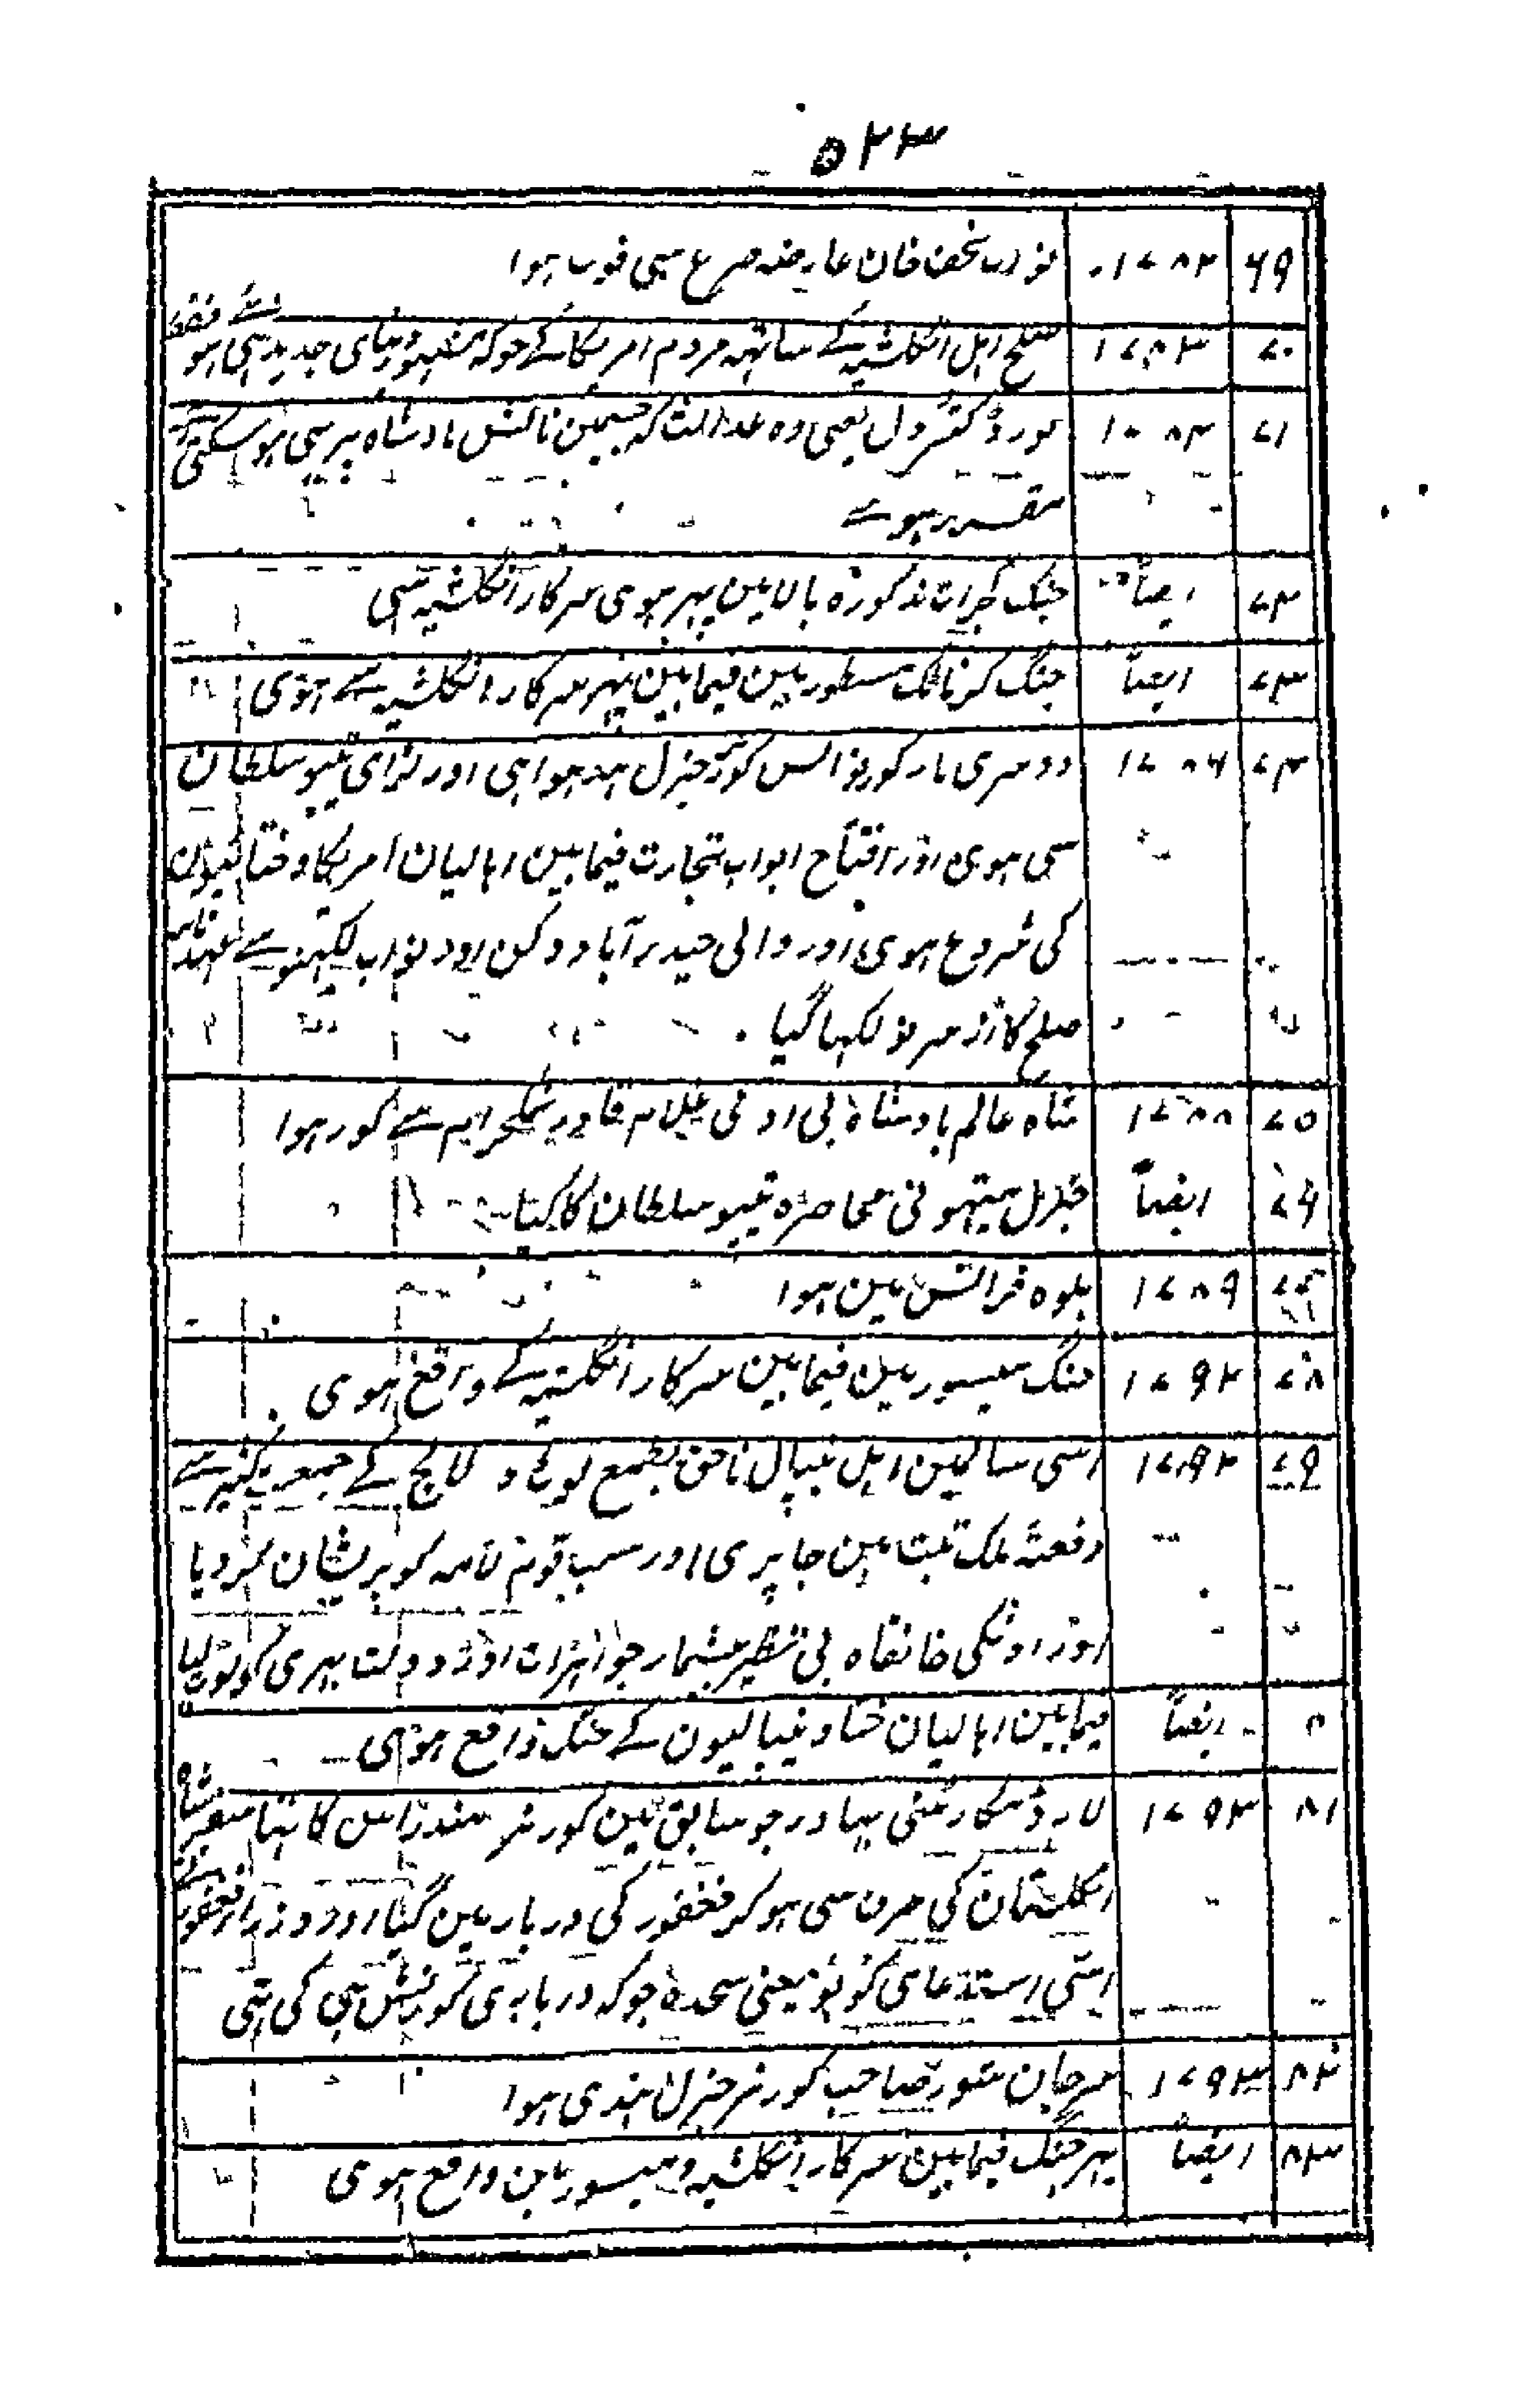 ۵۲۳
۶۹ ۱۷۸۲ نواب نجف خان عارضہ صرع سی فوت ہوا
۷۰ ۱۷۸۳ صلح اہل انگلشیہ کے ساتھہ مردم امریکا کے جوکہ مشہور دنیای جدید ہی ہو
۷۱ ۱۷۸۴ بورڈ کنٹرول یعنی وہ عدالت کہ جسمین نالش بادشاہ پر بہی ہو سکتی ہے
مقرر ہوے
۷۲ ایضاً جنگ گجرات مذکورہ بالا مین پہر ہوی سرکار انگلشیہ سی
۷۳ ایضاً جنگ کرناٹک مسطور مین فیمابین پہر سرکار انگلشیہ سے ہوی
۷۴ ۱۷۸۶ دوسری بار کورنوالس گورنر جنرل ہند ہوا ہی اور لڑای ٹیپو سلطان
سی ہوی اور افتتاح ابواب تجارت فیمابین اہالیان امریکا و ختائیون
کی شروع ہوی اور والی حیدرآباد دکن اور نواب لکہنو سے عہدنامہ
صلح کا از سر نو لکہا گیا
۷۵ ۱۷۸۸ شاہ عالم بادشاہ بی ادبی غلام قادر نمکحرام سے کور ہوا
۷۶ ایضاً جنرل میتہو نی محاصرہ ٹیپو سلطان کا کیا
۷۷ ۱۷۸۹ بلوہ فرانس مین ہوا
۷۸ ۱۷۹۲ جنگ میسور مین فیمابین سرکار انگلشیہ کے واقع ہوی
۷۹ ۱۷۹۲ اسی سالمین اہل نیپال ناحق بطمع لوٹ و لالچ کے جمعیت کثیر سے
دفعتہً ملک تبت مین جا پری اور سب قوم لامہ کو پریشان کر دیا
اور اونکی خانقاہ بی نظیر بیشمار جواہرات اور دولت بہری کو لوٹ لیا
۸ ایضاً فیمابین اہالیان ختا و نیپالیون کے جنگ واقع ہوی
۸۱ ۱۷۹۳ لارڈ مکارٹنی بہادر جو سابق مین گورنر مندراس کا تہا سفیر شاہ
انگلستان کی طرف سی ہوکر فغفور کی دربار مین گیا اور دربار فغفور
اسی استدعا سی کوتو یعنی سجدہ جوکہ درباری کورنش ہی کی تہی
۸۲ ۱۷۹۳ سرجان شور صاحب گورنر جنرل ہندی ہوا
۸۳ ایضاً پہر جنگ فیمابین سرکار انگلشیہ و میسور مین واقع ہوی